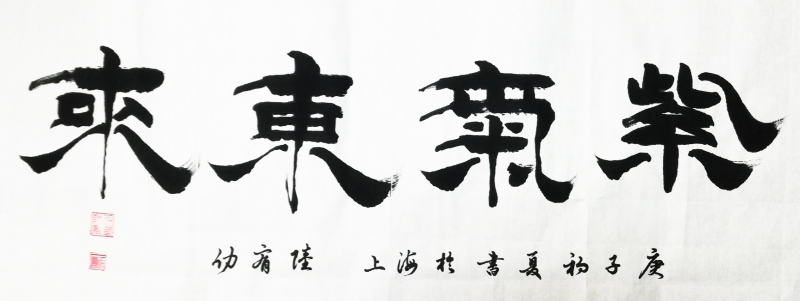 紫氣東來
庚子初夏書於海上 陸宥仂